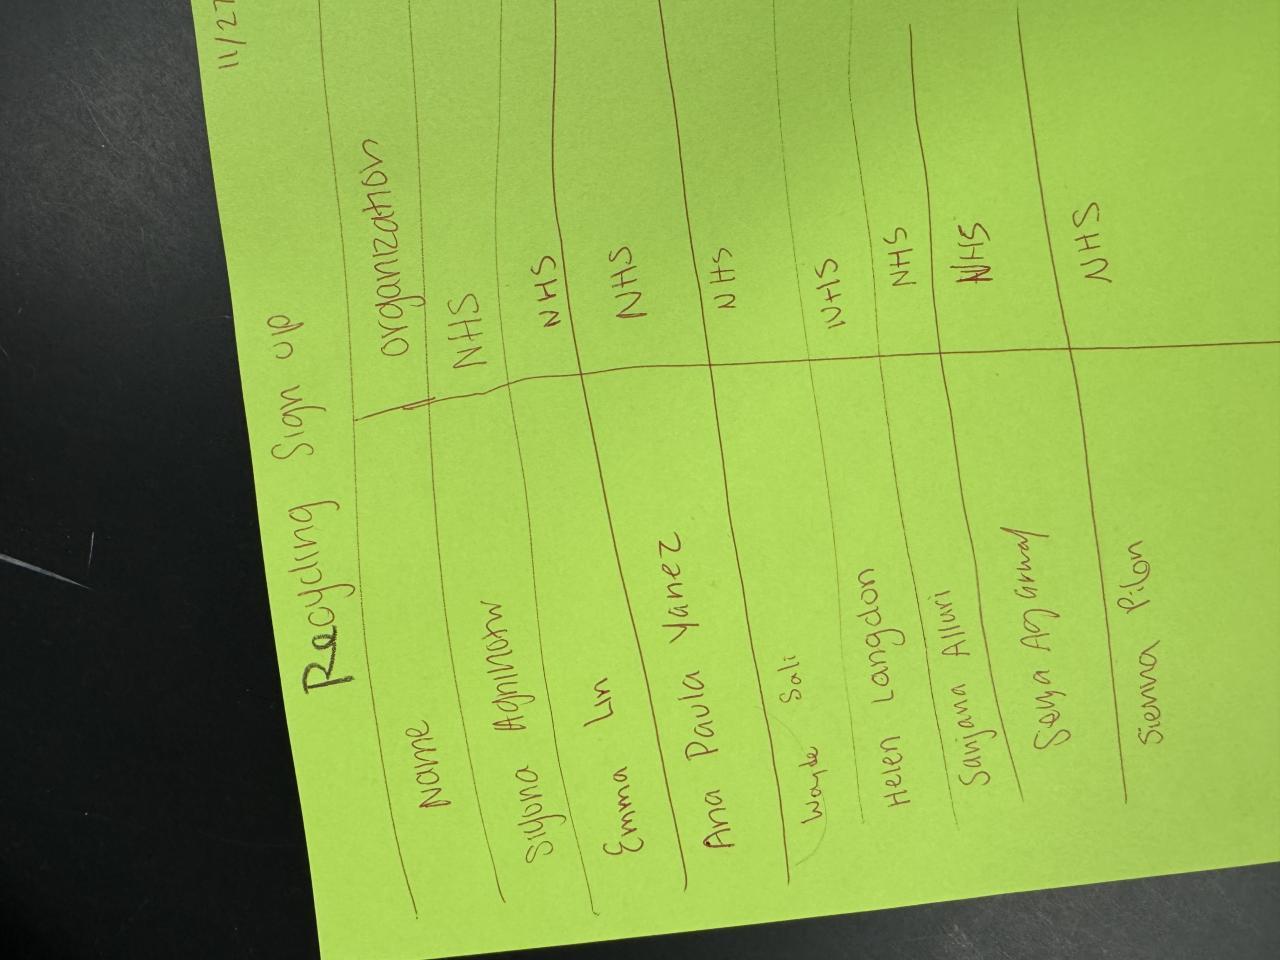 11/27
Recycling Sign up
Name organization
Siyona NHS
Emma Lin NHS
Ana Paula Yanez NHS
Wayde Sali NHS
Helen Langdon NHS
Sanjana Alluri NHS
Agarwal NHS
Sienna Pilon NHS